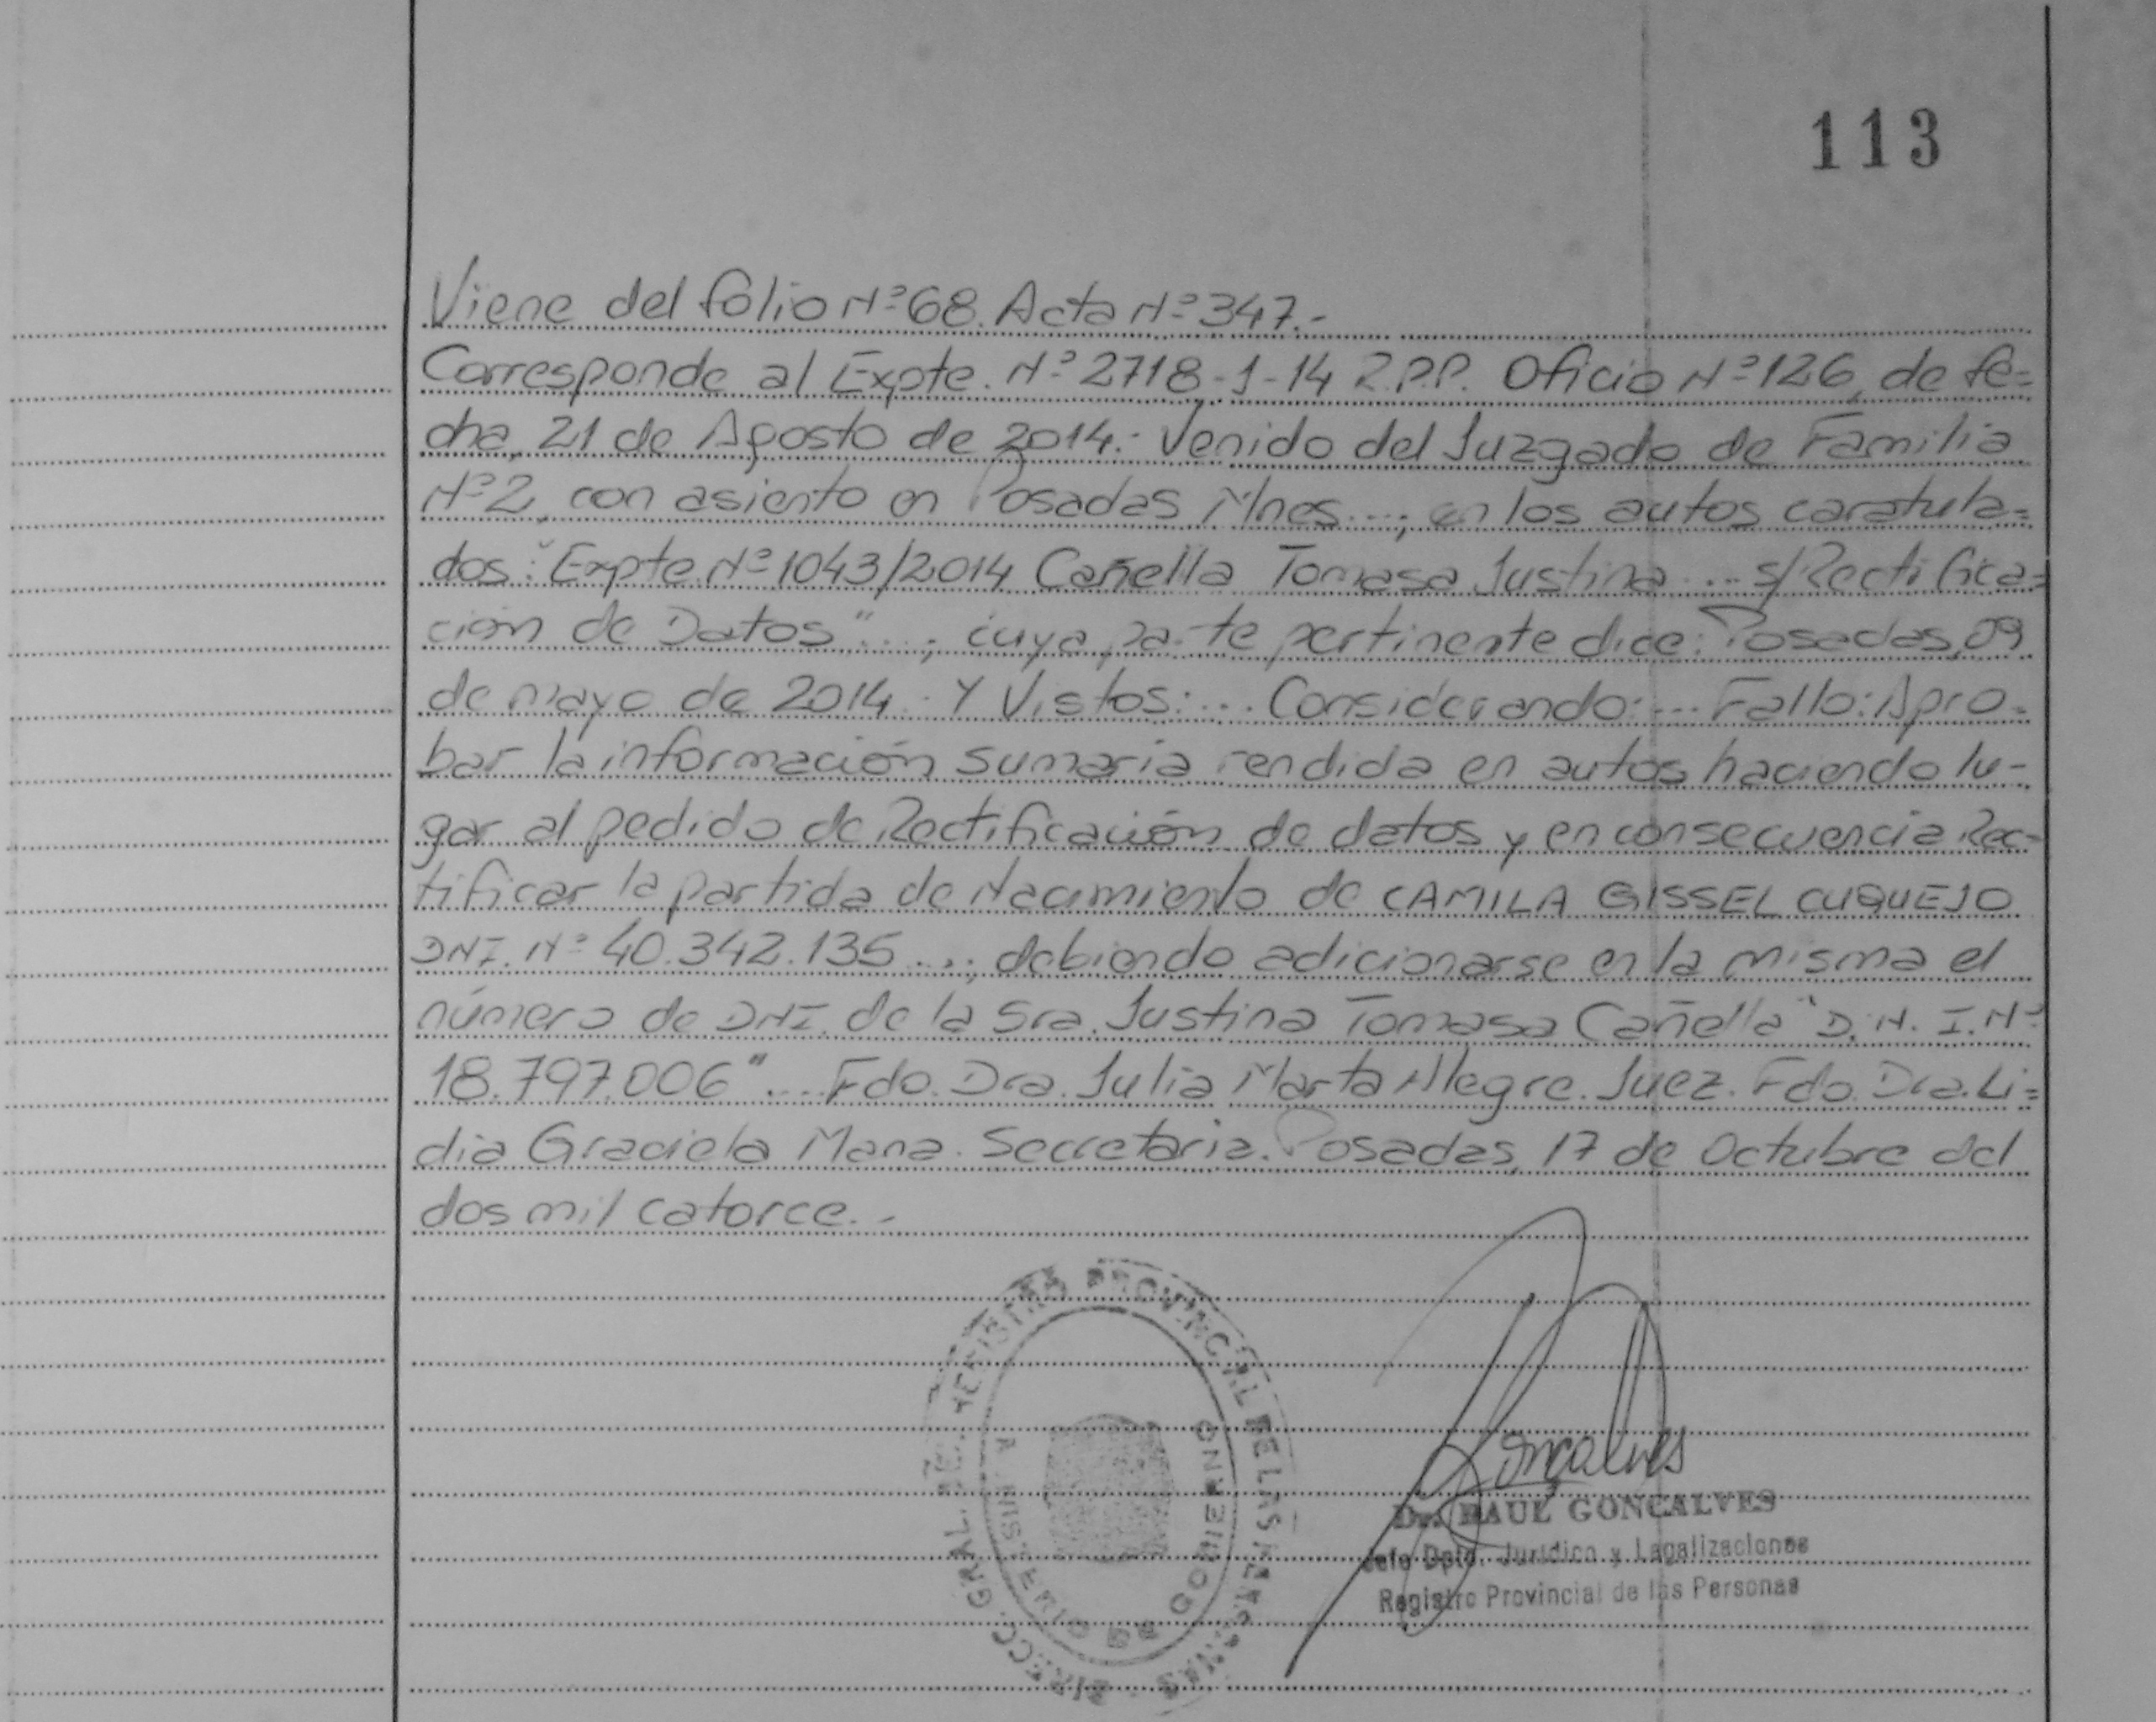 113
Viene del folio Nº 68. Acta Nº 347.-
Corresponde al Expte. Nº 2718-J-14 R.P.P. Oficio Nº 126, de fe=
cha, 21 de Agosto de 2014.- Venido del Juzgado de Familia
Nº 2, con asiento en Posadas Mnes...; en los autos caratula=
dos: "Expte. Nº 1043/2014 Cañella Tomasa Justina ... s/Rectifica=
ción de Datos"...; cuya parte pertinente dice: Posadas, 09
de mayo de 2014. Y Vistos:... Considerando:... Fallo: Apro-
bar la información sumaria rendida en autos haciendo lu-
gar al pedido de Rectificación de datos y en consecuencia Rec-
tificar la partida de Nacimiento de CAMILA GISSEL CUQUEJO
DNI. Nº 40.342.135 ...; debiendo adicionarse en la misma el
número de DNI. de la Sra. Justina Tomasa Cañella "D.N.I. Nº
18.797.006".... Fdo. Dra. Julia Marta Alegre. Juez. Fdo. Dra. Li=
dia Graciela Mana. Secretaria. Posadas, 17 de Octubre del
dos mil catorce.-
DIRECC. GRAL. DEL REGISTRO PROVINCIAL DE LAS PERSONAS
Gonçalves
Dr. RAUL GONCALVES
Jefe Dpto. Jurídico y Legalizaciones
Registro Provincial de las Personas